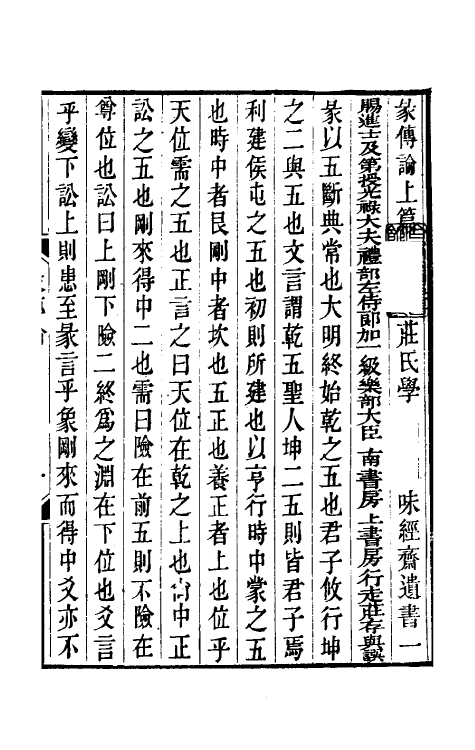 彖傳論上篇　莊氏學　味經齋遺書一
賜進士及第授光祿大夫禮部左侍郎加一級樂部大臣南書房上書房行走莊存與譔
彖以五斷典常也大明終始乾之五也君子攸行坤
之二與五也文言謂乾五聖人坤二五則皆君子焉
利建侯屯之五也初則所建也以亨行時中蒙之五
也時中者艮剛中者坎也五正也養正者上也位乎
天位需之五也正言之曰天位在乾之上也尚中正
訟之五也剛來得中二也需曰險在前五則不險在
尊位也訟曰上剛下險二終爲之淵在下位也爻言
乎變下訟上則患至彖言乎象剛來而得中爻亦不